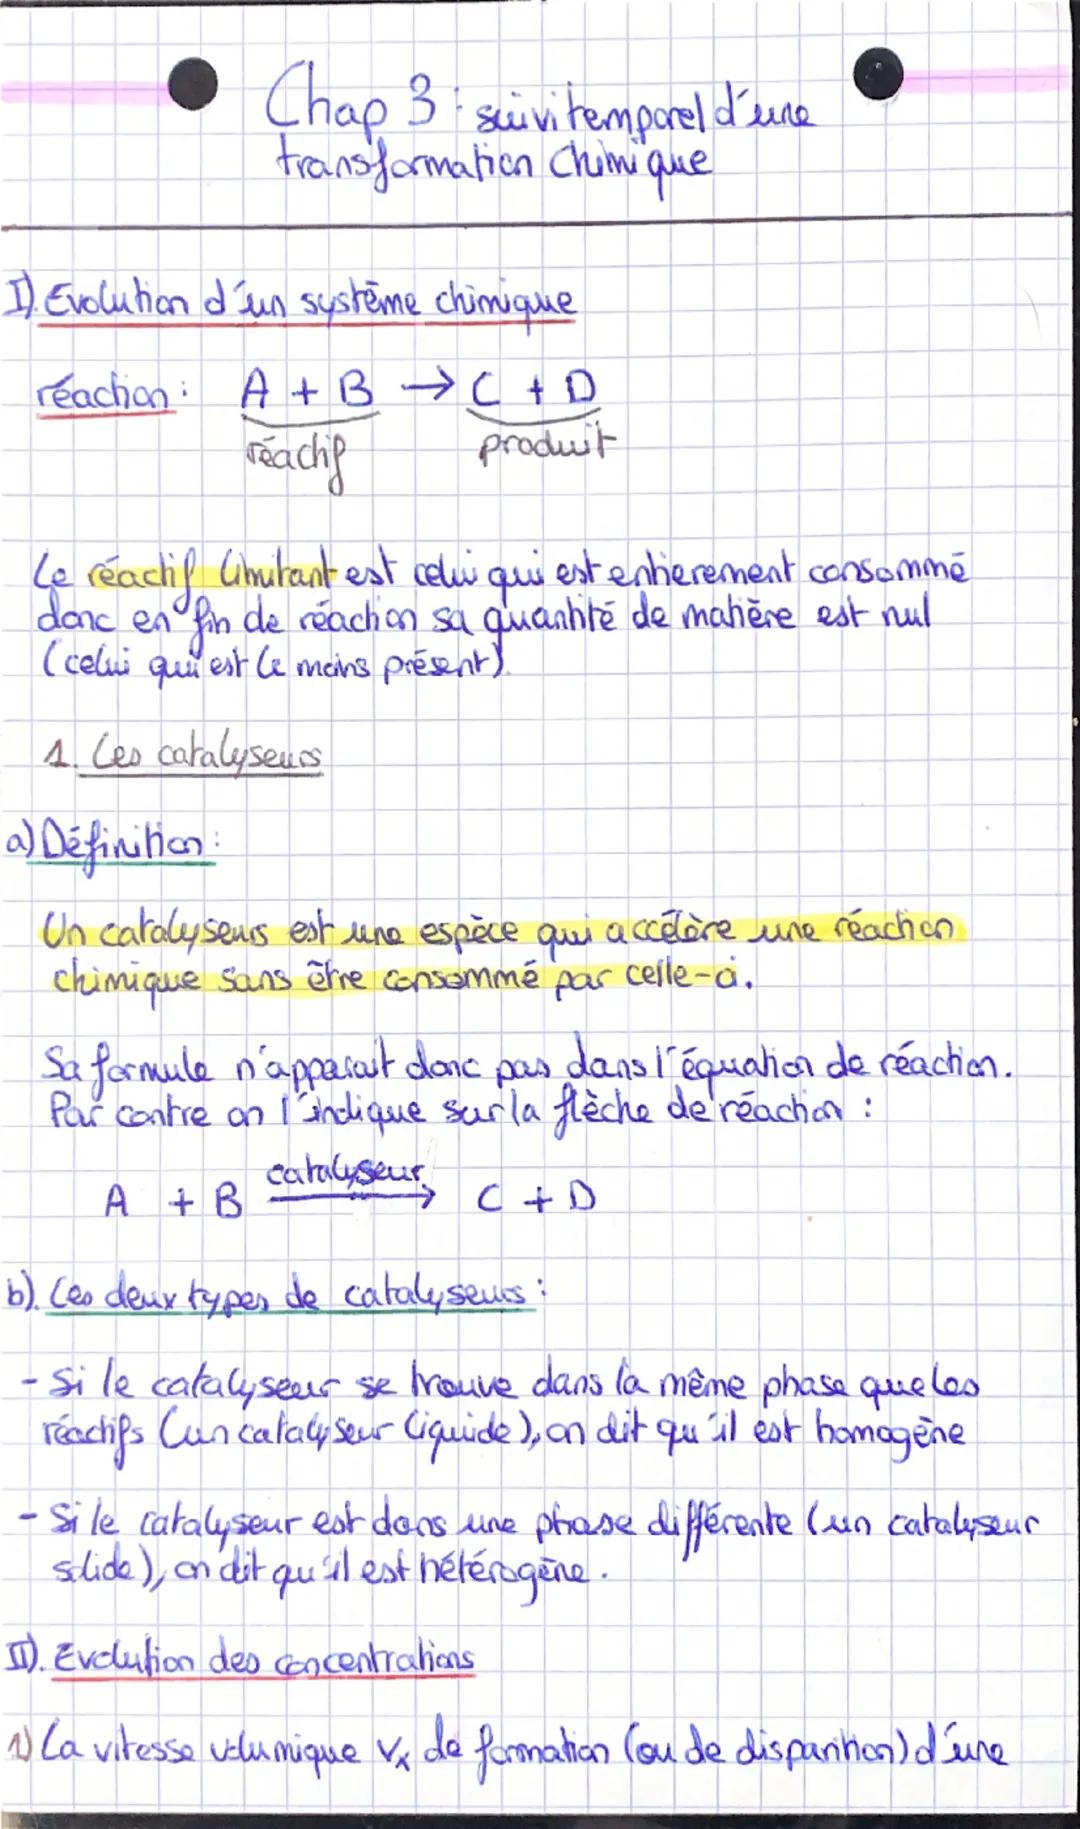 Chap 3 : suivi temporel d'une
transformation chimique
I). Evolution d'un système chimique
réaction : A + B → C + D
réactif produit
Le réactif limitant est celui qui est entierement consommé
donc en fin de réaction sa quantité de matière est nul
(celui qui est le moins présent).
1. Les catalyseurs
a) Définition :
Un catalyseurs est une espèce qui accélère une réaction
chimique sans être consommé par celle-ci.
Sa formule n'apparait donc pas dans l'équation de réaction.
Par contre on l'indique sur la flèche de réaction :
catalyseur
A + B → C + D
b). Les deux types de catalyseurs :
- Si le catalyseur se trouve dans la même phase que les
réactifs (un catalyseur liquide), on dit qu'il est homogène
- Si le catalyseur est dans une phase différente (un catalyseur
solide), on dit qu'il est hétérogène.
II). Evolution des concentrations
1) La vitesse volumique Vx de formation (ou de disparition) d'une